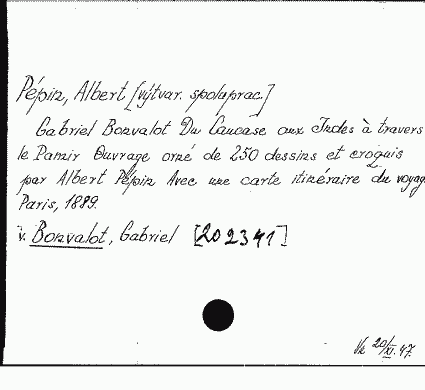 Pépin, Albert [výtvar. spoluprac.]
Gabriel Bonvalot Du Caucase aux Indes à travers
le Pamir Ouvrage orné de 250 dessins et croquis
par Albert Pépin Avec une carte itinéraire du voyag
Paris, 1889.
v. Bonvalot, Gabriel [202341]
Vk 20/XI. 47.